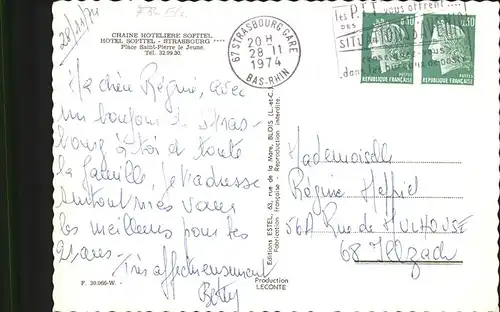 28/11/74
CHAINE HOTELIERE SOFITEL
HOTEL SOFITEL - STRASBOURG ....
Place Saint-Pierre le Jeune.
Tél. 32.99.30.
67 STRASBOURG GARE
20H
28-11
1974
BAS-RHIN
les P.T.T. vous offrent....
0,30
0,30
POSTES
REPUBLIQUE FRANÇAISE
REPUBLIQUE FRANÇAISE
Ma chère Régine, avec
un bonjour de Stras-
bourg à toi et toute
la famille, je t'adresse
surtout mes vœux
les meilleurs pour tes
21 ans.
Très affectueusement
Betty
Editions ESTEL, 63, rue de la Mare, BLOIS (L.-et-C.)
Fabrication Française - Reproduction interdite.
Mademoiselle
Régine
56A Rue de MULHOUSE
68 Illzach
F. 30.966-W.
Production
LECONTE